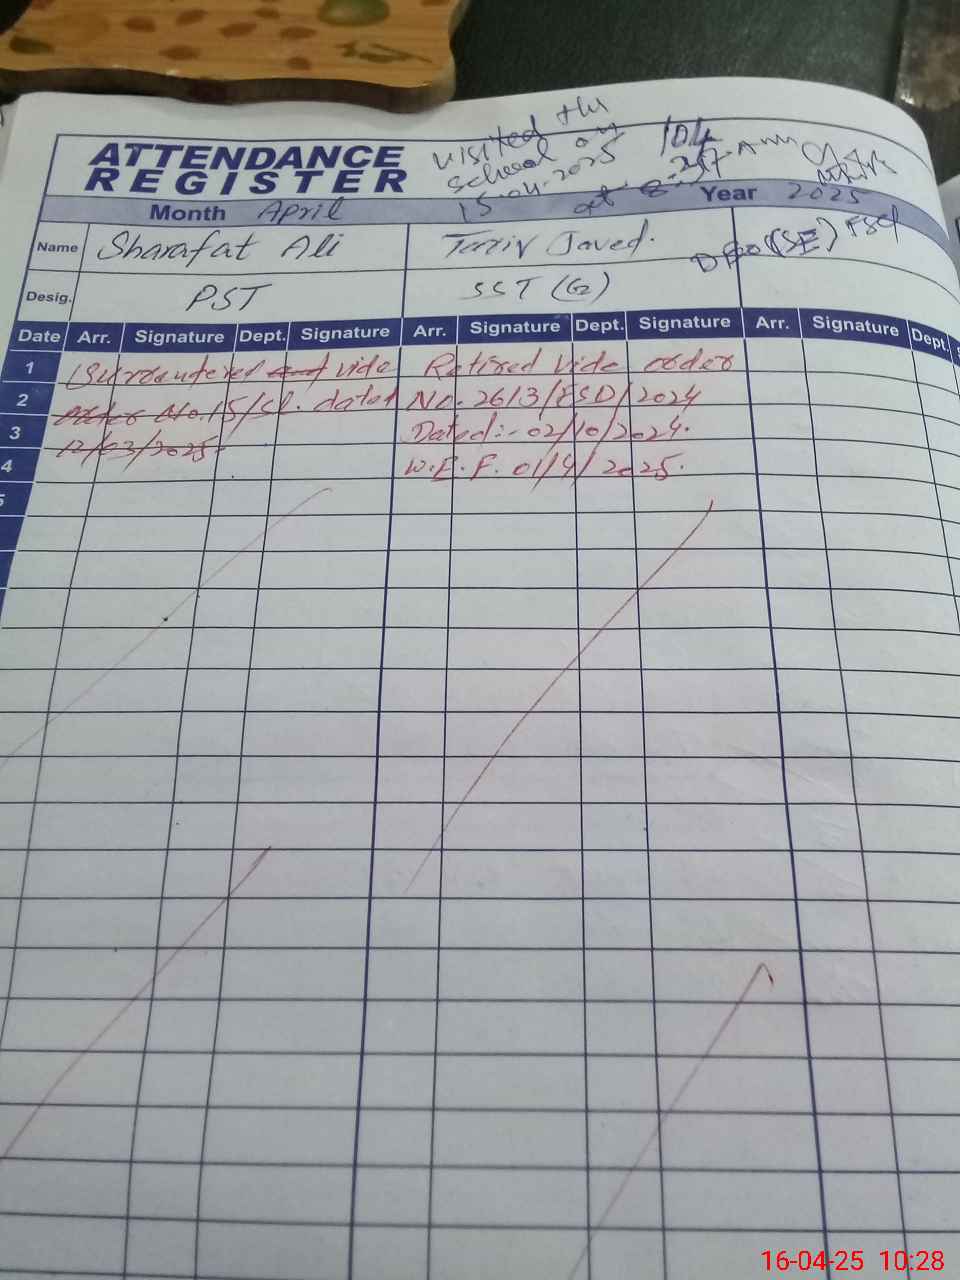 visited the
school on
15-04-2025
at 8:
ATTENDANCE
REGISTER
Month April
Year 2025
Name Sharafat Ali Tariq Javed.
Desig. PST SST (G)
(SE)
Date Arr. Signature Dept. Signature Arr. Signature Dept. Signature Arr. Signature Dept.
1 Surrendered vide Retired vide order
2 order No. 15/SL. dated No. 2613/ESD/2024
3 12/03/2025. Dated:- 02/10/2024.
4 W.E.F. 01/4/2025.
5
16-04-25 10:28